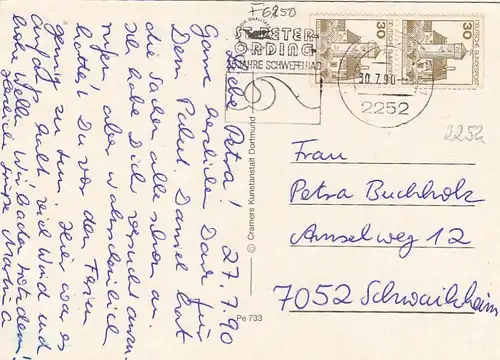 F6250
ST. PETER-
ORDING
JAHRE SCHWEFELBAD
30.7.90
2252
30
30
DEUTSCHE BUNDESPOST
2252
27.7.90
Liebe Petra!
Ganz herzlichen Dank für
Dein Paket. Daniel hat
die Sachen alle schon an.
Ich habe Dich versucht anzu-
rufen aber wahrscheinlich
hattest Du vor den Ferien
genug zu tun. Hier war es
auch kalt viel Wind und
hohe Wellen. Wir baden trotzdem!
Herzliche Grüße Martina
© Cramers Kunstanstalt Dortmund
Pe 733
Frau
Petra Buchholz
Amselweg 12
7052 Schwaikheim